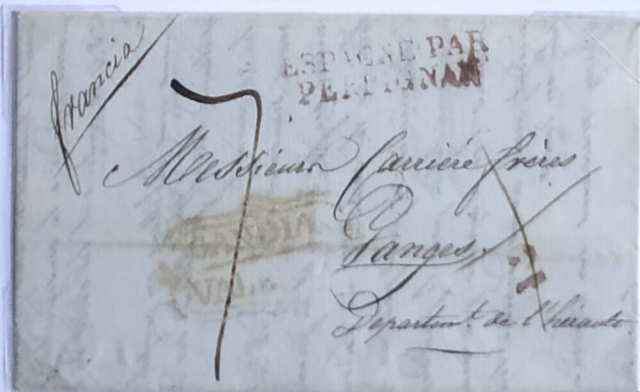 francia
ESPAGNE PAR
PERPIGNAN
7
Messieurs Carrière frères
Ganges
Departmt. de l'hérault